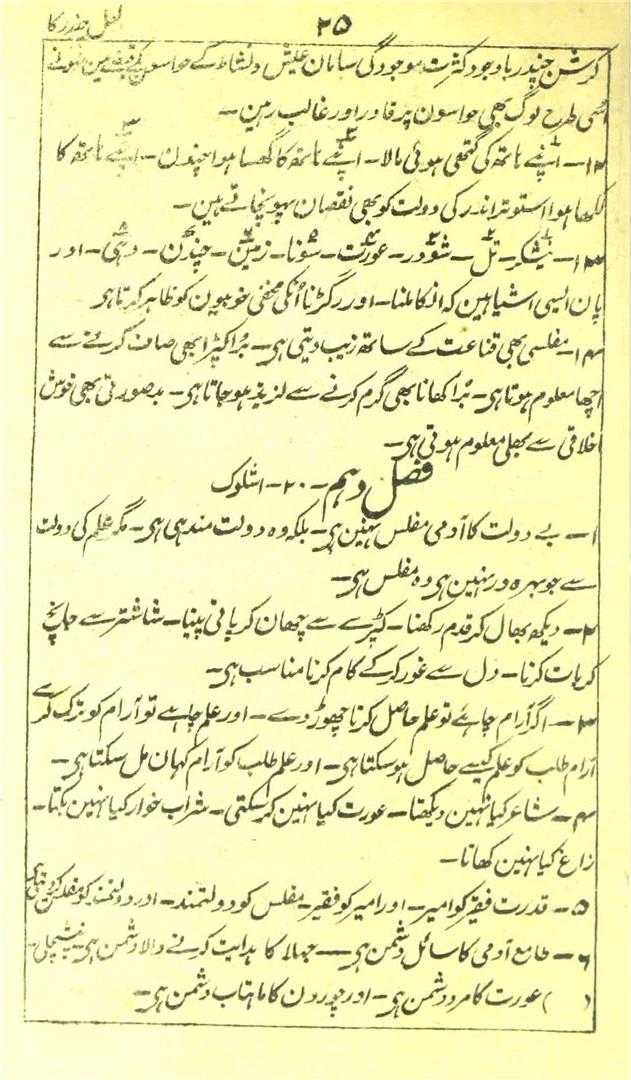 ۲۵
لعل چندر کا
کرشن چندر باوجود کثرت موجودگی سامان عیش و نشاط کے حواسون کے قبضے مین نہوئے
اُسی طرح لوگ بھی حواسون پر قادر اور غالب رہین۔
۱۲۔ اپنے ہاتھ کی گتھی ہوئی مالا۔ اپنے ہاتھ کا گھسا ہوا چندن۔ اپنے ہاتھ کا
لکھا ہوا استوتر اندر کی دولت کو بھی نقصان پہونچاتے ہین۔
۱۳۔ نیشکر۔ تل۔ شودر۔ عورت۔ سونا۔ زمین۔ چندن۔ دہی۔ اور
پان ایسی اشیا ہین کہ انکا ملنا۔ اور رگڑنا اُنکی مخفی خوبیون کو ظاہر کرتا ہی
۱۴۔ مفلسی بھی قناعت کے ساتھ زیب دیتی ہی۔ بُرا کپڑا بھی صاف کرنے سے
اچھا معلوم ہوتا ہی۔ بُرا کھانا بھی گرم کرنے سے لزیذ ہو جاتا ہی۔ بدصورتی بھی خوش
اخلاقی سے بھلی معلوم ہوتی ہی۔
فصل دہم۔ ۲۰۔ اشلوک
۱۔ بے دولت کا آدمی مفلس نہین ہی۔ بلکہ وہ دولت مند ہی ہی۔ مگر علم کی دولت
سے جو بہرہ ور نہین ہی وہ مفلس ہی۔
۲۔ دیکھ بھال کر قدم رکھنا۔ کپڑے سے چھان کر پانی پینا۔ شاشتر سے جانچ
کر بات کرنا۔ دل سے غور کر کے کام کرنا مناسب ہی۔
۳۔ اگر آرام چاہے تو علم حاصل کرنا چھوڑ دے۔ اور علم چاہے تو آرام کو ترک کرے
آرام طلب کو علم کیسے حاصل ہو سکتا ہی۔ اور علم طلب کو آرام کہان مل سکتا ہی۔
۴۔ شاعر کیا نہین دیکھتا۔ عورت کیا نہین کر سکتی۔ شراب خوار کیا نہین بکتا۔
زاغ کیا نہین کھاتا۔
۵۔ قدرت فقیر کو امیر۔ اور امیر کو فقیر۔ مفلس کو دولتمند۔ اور دولتمند کو مفلس
۶۔ طامع آدمی کا سائل دشمن ہی۔ جہلا کا ہدایت کرنے والا دشمن ہی۔
( ) عورت کا مرد دشمن ہی۔ اور چورون کا ماہتاب دشمن ہی۔